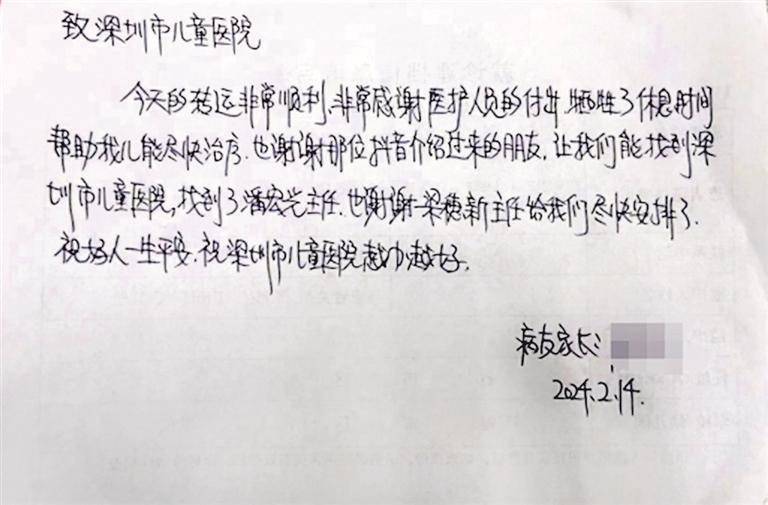 致深圳市儿童医院
今天的转运非常顺利、非常感谢医护人员的付出.牺牲了休息时间
帮助我儿能尽快治疗.也谢谢那位抖音介绍过来的朋友,让我们能找到深
圳市儿童医院,找到了潘宏光主任.也谢谢梁穗新主任给我们尽快安排了.
祝好人一生平安.祝深圳市儿童医院越办越好.
病友家长:
2024.2.14.